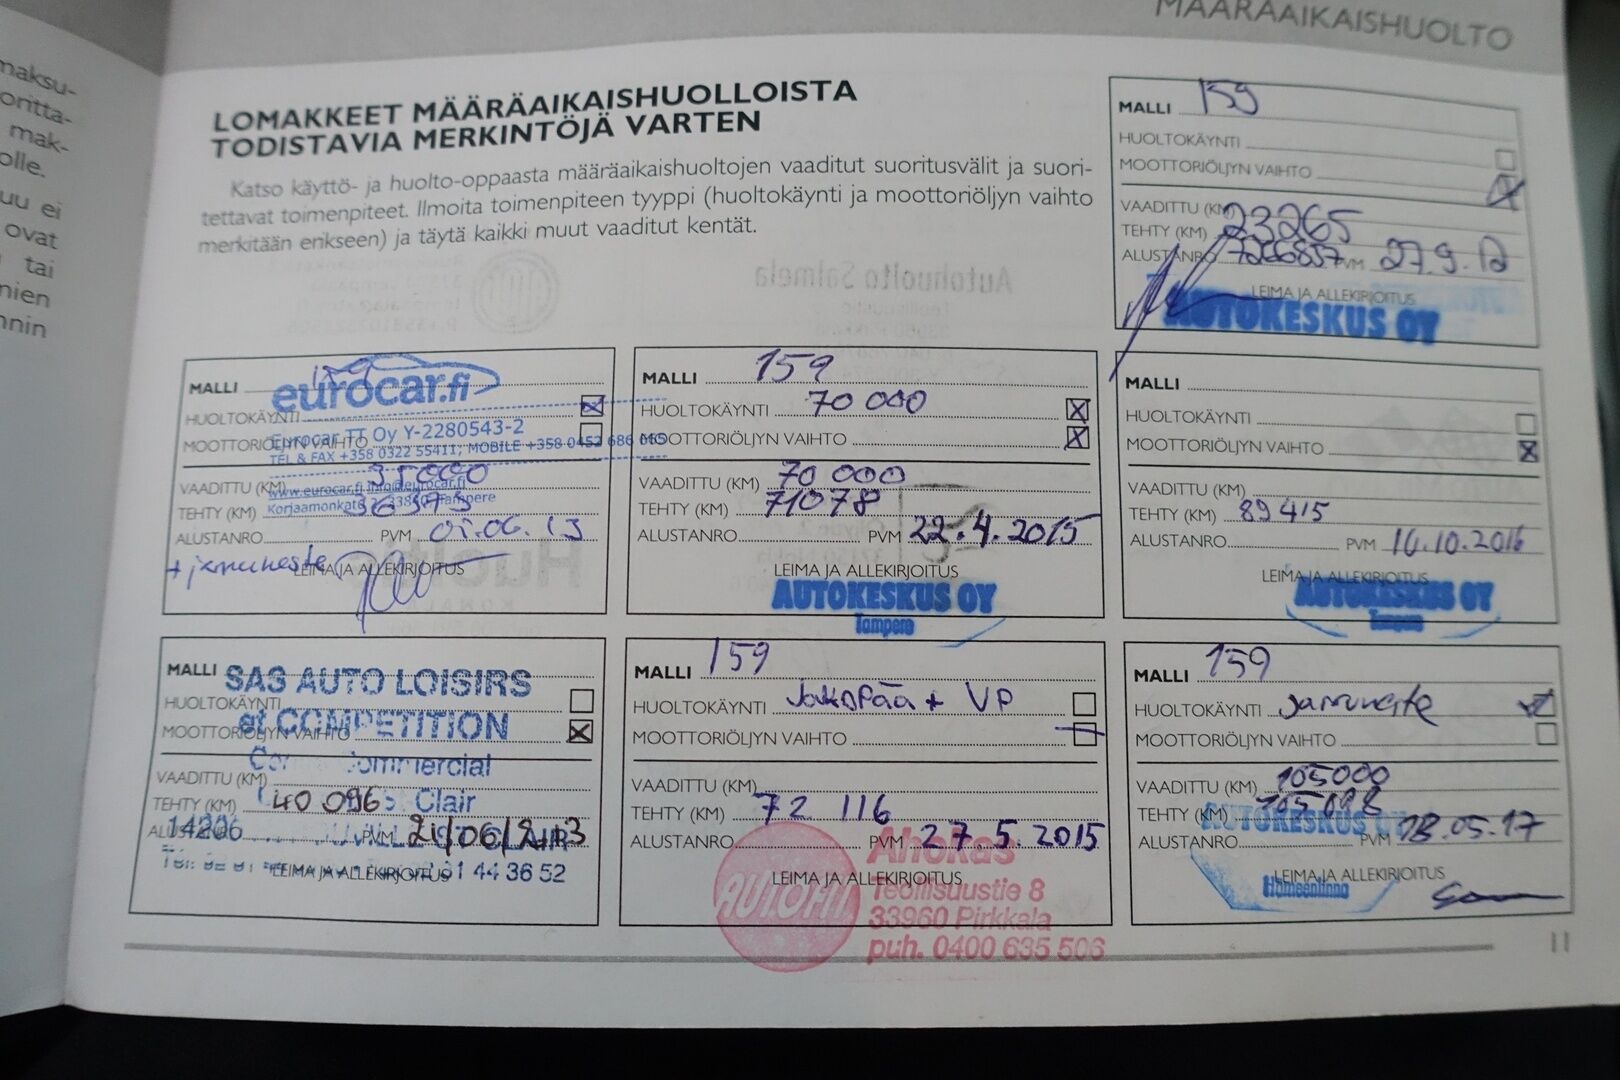 MÄÄRÄAIKAISHUOLTO
maksu-
oritta-
mak-
olle.
uu ei
ovat
tai
mien
nnin
LOMAKKEET MÄÄRÄAIKAISHUOLLOISTA
TODISTAVIA MERKINTÖJÄ VARTEN
Katso käyttö- ja huolto-oppaasta määräaikaishuoltojen vaaditut suoritusvälit ja suori-
tettavat toimenpiteet. Ilmoita toimenpiteen tyyppi (huoltokäynti ja moottoriöljyn vaihto
merkitään erikseen) ja täytä kaikki muut vaaditut kentät.
MALLI 159
HUOLTOKÄYNTI
MOOTTORIÖLJYN VAIHTO X
VAADITTU (KM)
TEHTY (KM) 23265
ALUSTANRO 7266857 PVM 27.9.12
LEIMA JA ALLEKIRJOITUS
AUTOKESKUS OY
MALLI 159
eurocar.fi
HUOLTOKÄYNTI X
MOOTTORIÖLJYN VAIHTO
Eurocar TT Oy Y-2280543-2
TEL & FAX +358 0322 55411; MOBILE +358 0452 686 665
VAADITTU (KM) 35000
www.eurocar.fi info@eurocar.fi
TEHTY (KM)
Tampere
ALUSTANRO PVM
+ jarruneste
LEIMA JA ALLEKIRJOITUS
MALLI 159
HUOLTOKÄYNTI 70 000 X
MOOTTORIÖLJYN VAIHTO X
VAADITTU (KM) 70 000
TEHTY (KM) 71078
ALUSTANRO PVM 22.4.2015
LEIMA JA ALLEKIRJOITUS
AUTOKESKUS OY
Tampere
MALLI
HUOLTOKÄYNTI
MOOTTORIÖLJYN VAIHTO X
VAADITTU (KM)
TEHTY (KM) 89415
ALUSTANRO PVM 10.2016
LEIMA JA ALLEKIRJOITUS
AUTOKESKUS OY
Tampere
MALLI
SAS AUTO LOISIRS
HUOLTOKÄYNTI
et COMPETITION
MOOTTORIÖLJYN VAIHTO X
VAADITTU (KM)
TEHTY (KM) 40 096
Clair
ALUSTANRO PVM
LEIMA JA ALLEKIRJOITUS
44 36 52
MALLI 159
HUOLTOKÄYNTI Jakopää + VP
MOOTTORIÖLJYN VAIHTO
VAADITTU (KM)
TEHTY (KM) 72 116
ALUSTANRO PVM 27.5.2015
LEIMA JA ALLEKIRJOITUS
AUTOFIT
Ahokas
Teollisuustie 8
33960 Pirkkala
puh. 0400 635 506
MALLI 159
HUOLTOKÄYNTI Jarruneste
MOOTTORIÖLJYN VAIHTO
VAADITTU (KM) 105000
TEHTY (KM)
AUTOKESKUS OY
ALUSTANRO PVM 18.05.17
LEIMA JA ALLEKIRJOITUS
Hämeenlinna
11